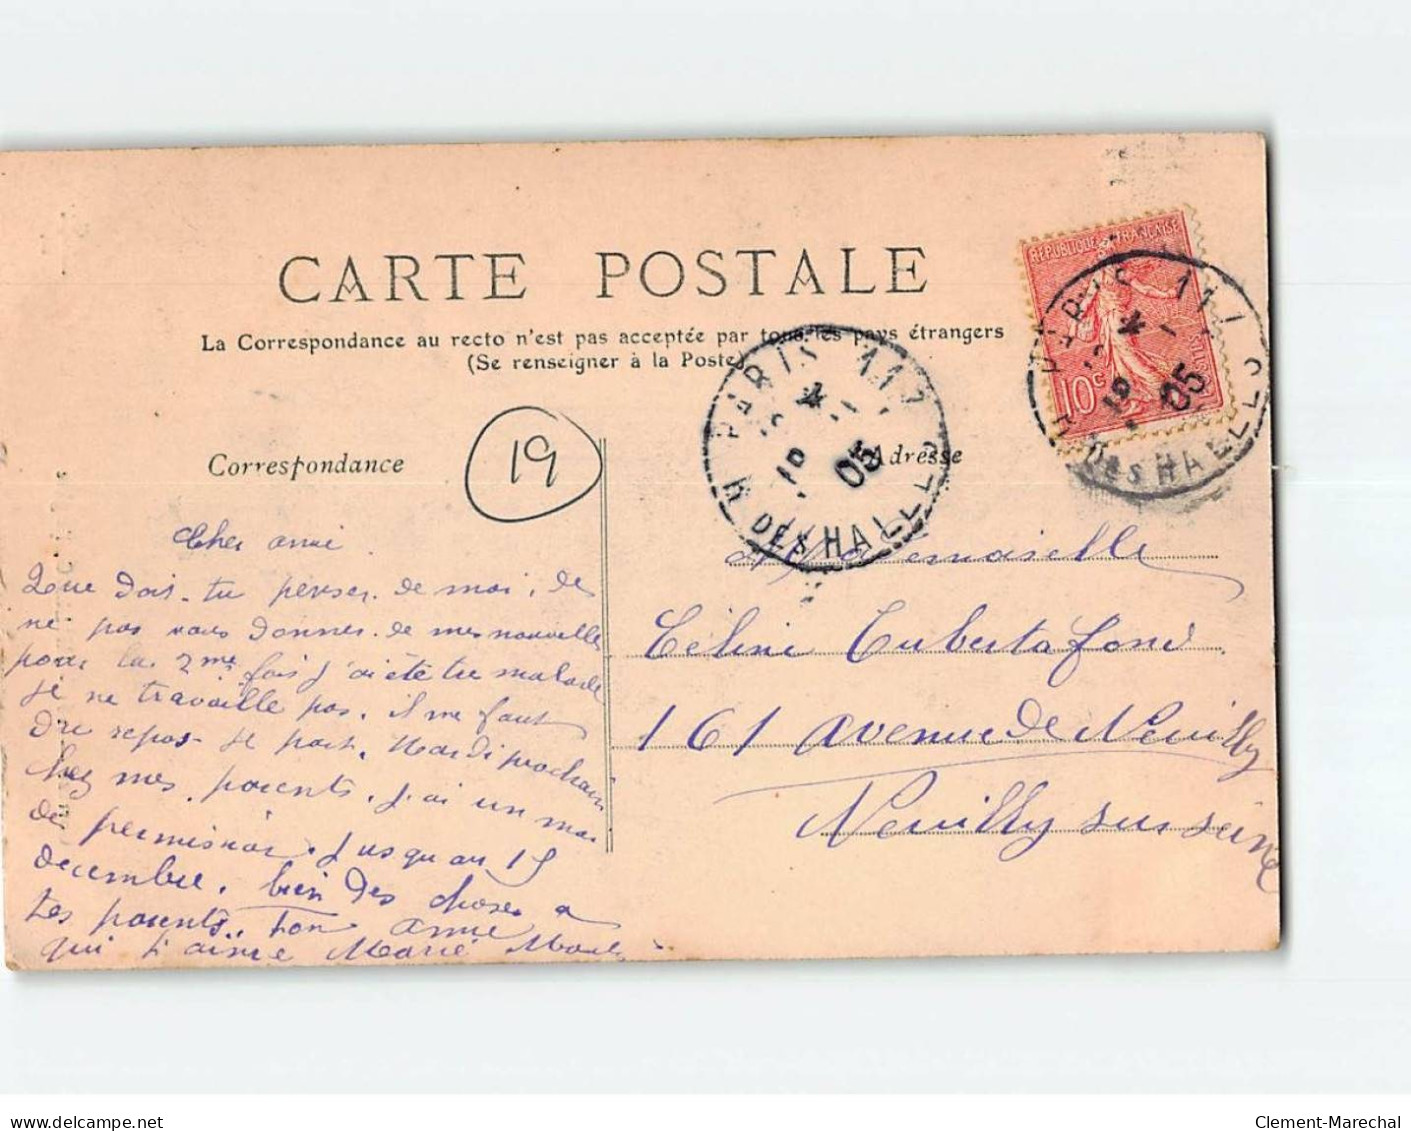 CARTE POSTALE
La Correspondance au recto n'est pas acceptée par tous les pays étrangers
(Se renseigner à la Poste)
REPUBLIQUE FRANÇAISE
10c
PARIS 117
05
R. DES HALLES
PARIS 117
05
R. DES HALLES
Correspondance
19
Adresse
Cher amie
Que dois-tu penser de moi, de
ne pas vous donner de mes nouvelles
pour la 2me fois j'ai été tre malade
je ne travaille pas. il me faut
du repos je part. Mardi prochain
chez mes parents. j'ai un moi
de permission. Jusqu'au 15
decembre. bien des choses a
tes parents. ton amie
qui t'aime Marie
Mademoiselle
Céline Tubertafond
161 avenue de Neuilly
Neuilly sur seine
Clement-Marechal